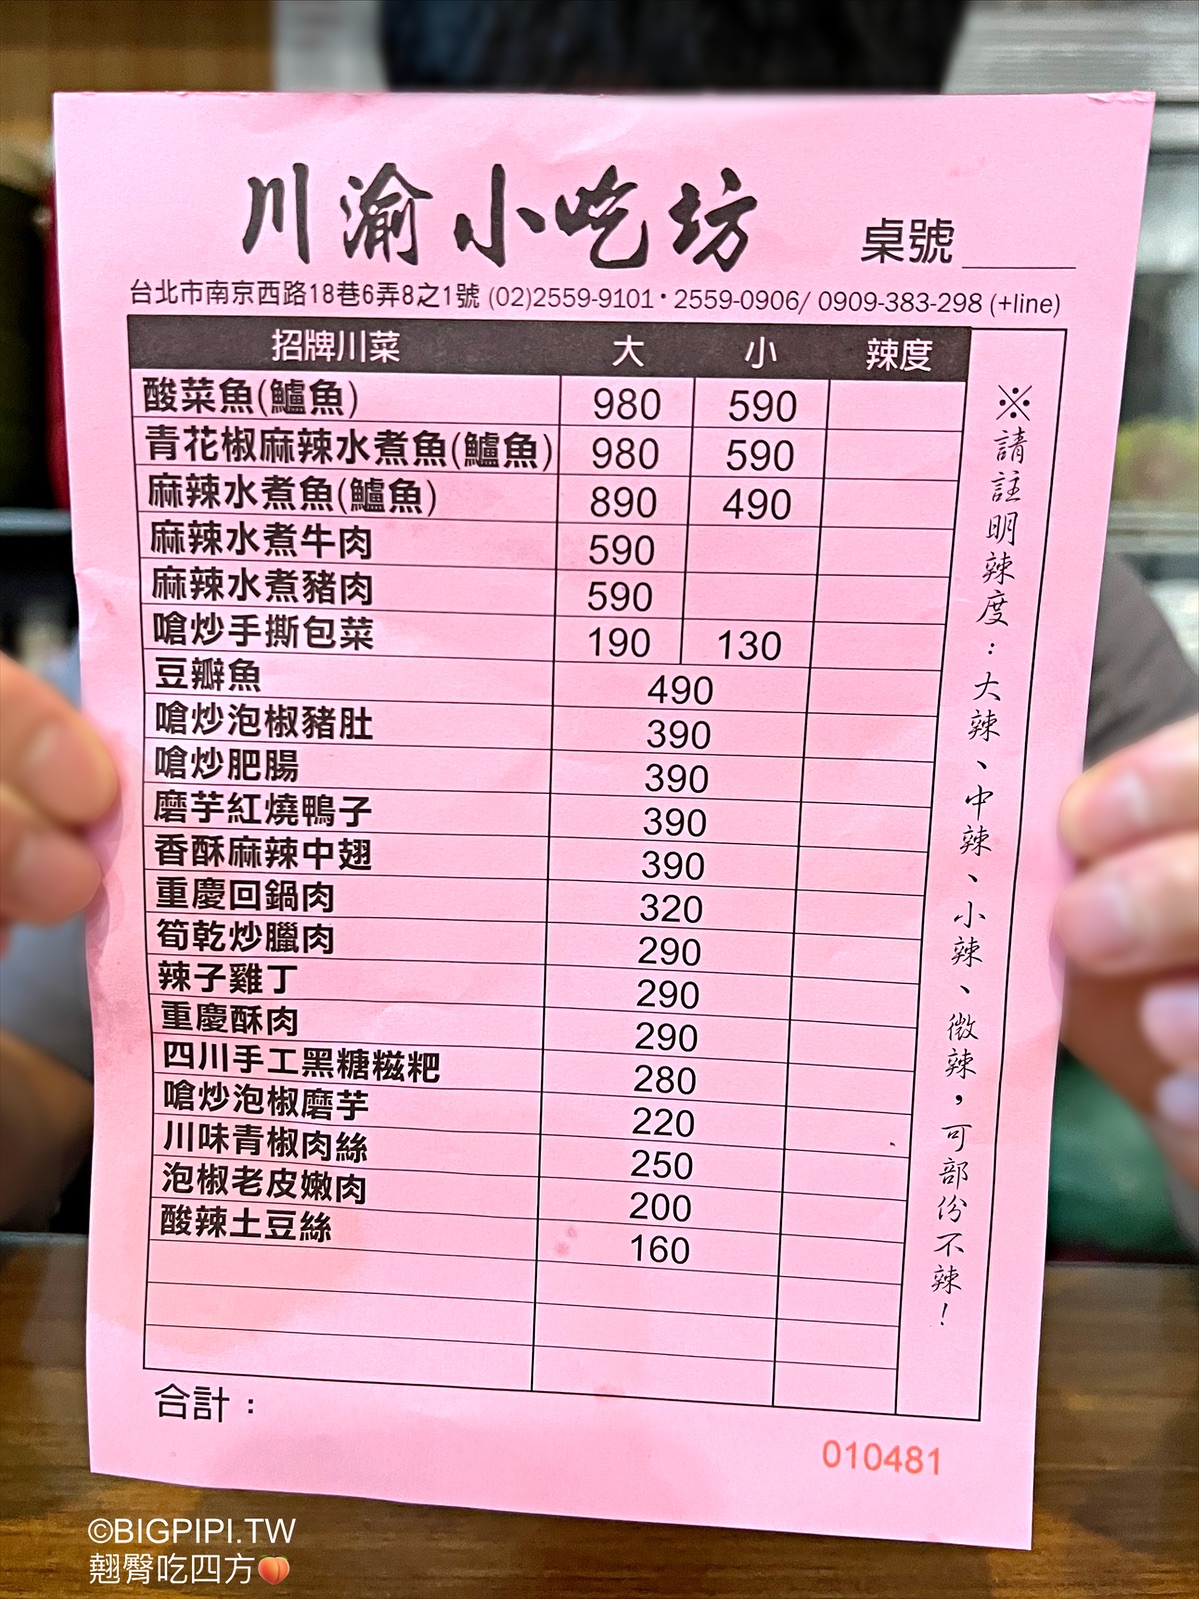 川渝小吃坊 桌號
台北市南京西路18巷6弄8之1號 (02)2559-9101・2559-0906/ 0909-383-298 (+line)
招牌川菜 大 小 辣度
酸菜魚(鱸魚) 980 590
青花椒麻辣水煮魚(鱸魚) 980 590
麻辣水煮魚(鱸魚) 890 490
麻辣水煮牛肉 590
麻辣水煮豬肉 590
嗆炒手撕包菜 190 130
豆瓣魚 490
嗆炒泡椒豬肚 390
嗆炒肥腸 390
磨芋紅燒鴨子 390
香酥麻辣中翅 390
重慶回鍋肉 320
筍乾炒臘肉 290
辣子雞丁 290
重慶酥肉 290
四川手工黑糖糍粑 280
嗆炒泡椒磨芋 220
川味青椒肉絲 250
泡椒老皮嫩肉 200
酸辣土豆絲 160
※請註明辣度：大辣、中辣、小辣、微辣，可部份不辣！
合計：
010481
©BIGPIPI.TW
翹臀吃四方🍑